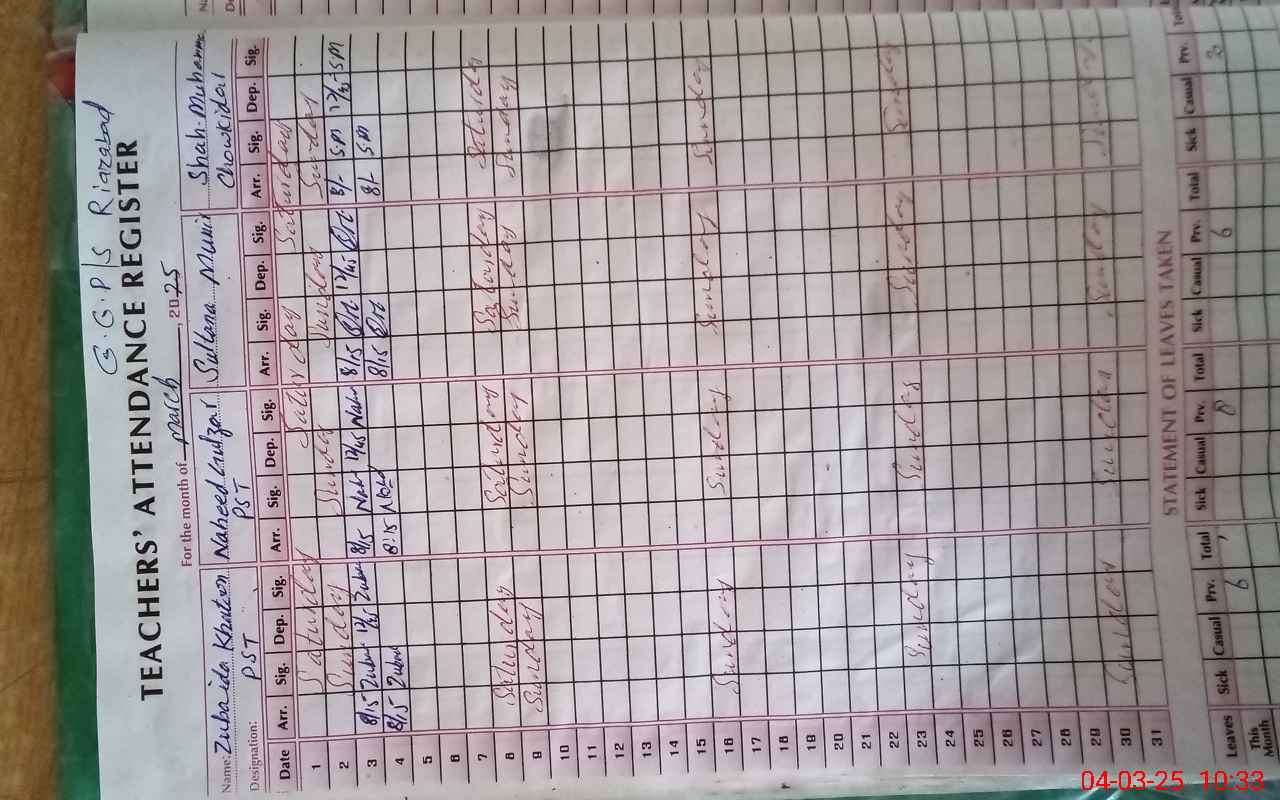 G.G.P/S Riazabad
TEACHERS' ATTENDANCE REGISTER
For the month of March, 2025
Name: Zubaida Khatoon Naheed Gulzar Sultana Munir Shah Muhamm
Designation: PST PST Chowkidar
Date Arr. Sig. Dep. Sig. Arr. Sig. Dep. Sig. Arr. Sig. Dep. Sig. Arr. Sig. Dep. Sig.
1 Saturday Saturday Saturday
2 Sunday Sunday Sunday Sunday
3 8/15 Zubai 12/45 Zubai 8/15 Nah 12/45 Nah 8/15 12/45 8/- SM 12/45 SM
4 8/15 Zubai 8:15 Nah 8/15 8/- SM
5
6
7
8 Saturday Saturday Saturday Saturday
9 Sunday Sunday Sunday Sunday
10
11
12
13
14
15
16 Sunday Sunday Sunday Sunday
17
18
19
20
21
22
23 Sunday Sunday Sunday Sunday
24
25
26
27
28
29
30 Sunday Sunday Sunday Sunday
31
STATEMENT OF LEAVES TAKEN
Leaves Sick Casual Prv. Total Sick Casual Prv. Total Sick Casual Prv. Total Sick Casual Prv. Total
This Month 6 8 6
04-03-25 10:33